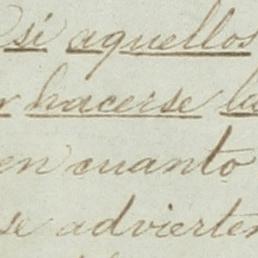 si aquellos
hacerse
en cuanto
se advierten